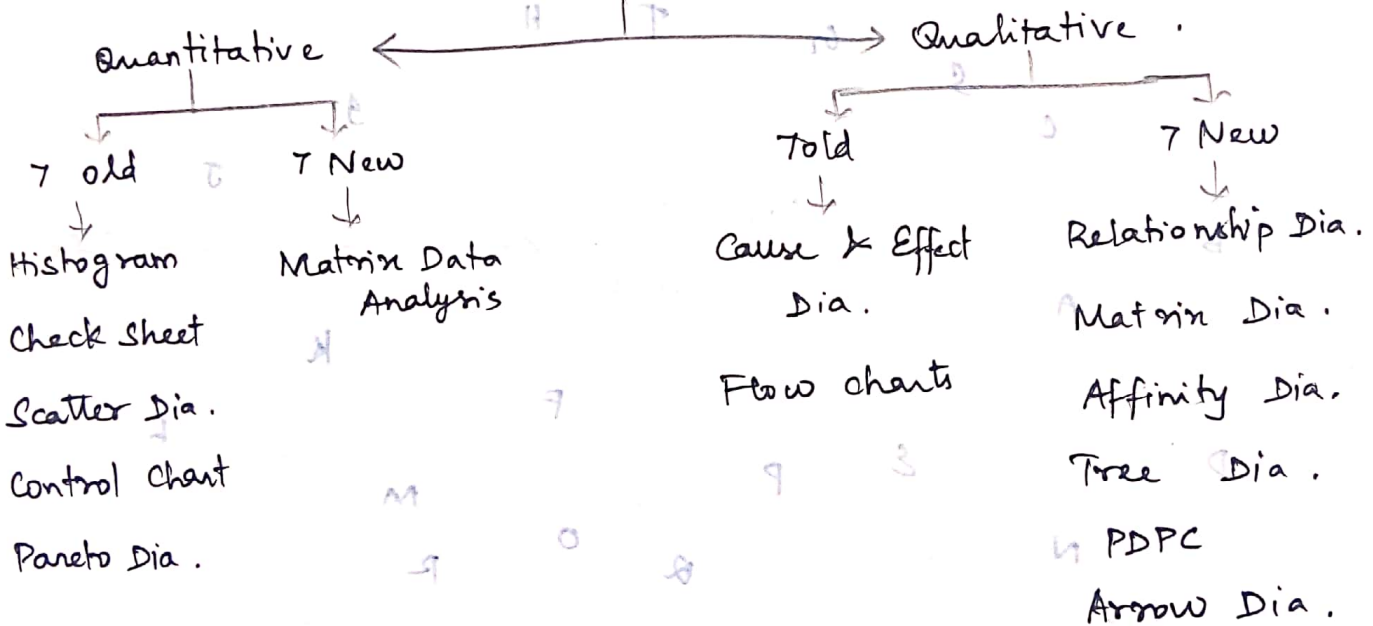 Quantitative
Qualitative .
7 old
7 New
7 old
7 New
Histogram
Check Sheet
Scatter Dia.
Control Chart
Pareto Dia.
Matrix Data
Analysis
Cause & Effect
Dia.
Flow charts
Relationship Dia.
Matrix Dia.
Affinity Dia.
Tree Dia.
PDPC
Arrow Dia.